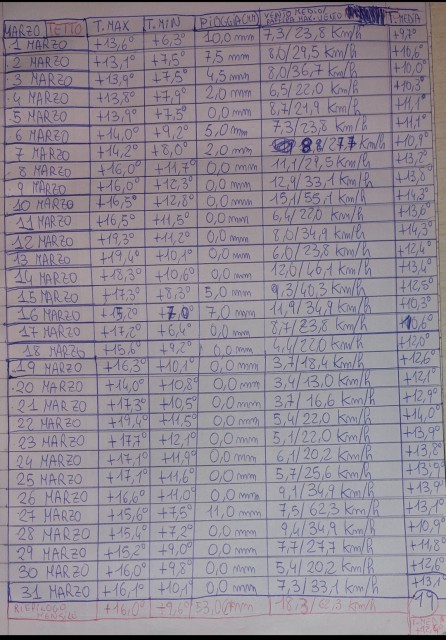 MARZO TETTO T.MAX T.MIN PIOGGIA(MM) VENTO MEDIO/ T.MEDIA
1 MARZO +13,6° +6,3° 10,0 mm 7,3/23,8 Km/h +9,7°
2 MARZO +13,1° +7,5° 7,5 mm 8,0/29,5 Km/h +10,6°
3 MARZO +13,9° +7,5° 4,5 mm 8,0/36,7 Km/h +10,0°
4 MARZO +13,8° +7,9° 2,0 mm 6,5/22,0 Km/h +10,3°
5 MARZO +13,9° +7,5° 0,0 mm 8,7/21,9 Km/h +11,1°
6 MARZO +14,0° +9,2° 5,0 mm 7,3/23,8 Km/h +11,1°
7 MARZO +14,2° +8,0° 2,0 mm 8,8/27,7 Km/h +10,9°
8 MARZO +16,0° +11,7° 0,0 mm 11,1/29,5 Km/h +13,2°
9 MARZO +16,0° +12,3° 0,0 mm 12,9/33,1 Km/h +13,6°
10 MARZO +16,5° +12,8° 0,0 mm 15,1/55,1 Km/h +14,3°
11 MARZO +16,5° +11,5° 0,0 mm 6,4/22,0 Km/h +13,6°
12 MARZO +19,3° +11,2° 0,0 mm 8,0/34,9 Km/h +14,3°
13 MARZO +19,4° +10,1° 0,0 mm 6,0/23,8 Km/h +12,4°
14 MARZO +18,3° +10,6° 0,0 mm 12,0/46,1 Km/h +13,4°
15 MARZO +17,3° +8,3° 5,0 mm 9,3/40,3 Km/h +12,5°
16 MARZO +15,2° +7,0° 7,0 mm 11,9/34,9 Km/h +10,3°
17 MARZO +17,2° +6,4° 0,0 mm 8,7/23,8 Km/h +10,6°
18 MARZO +15,6° +9,2° 0,0 mm 4,4/22,0 Km/h +12,0°
19 MARZO +16,3° +10,1° 0,0 mm 3,7/18,4 Km/h +12,6°
20 MARZO +14,0° +10,8° 0,0 mm 3,4/13,0 Km/h +12,1°
21 MARZO +17,3° +10,5° 0,0 mm 3,7/16,6 Km/h +12,9°
22 MARZO +19,4° +11,5° 0,0 mm 5,4/22,0 Km/h +14,0°
23 MARZO +17,7° +12,1° 0,0 mm 5,1/22,0 Km/h +13,9°
24 MARZO +17,1° +11,9° 0,0 mm 6,1/20,2 Km/h +13,8°
25 MARZO +17,1° +11,6° 0,0 mm 5,7/25,6 Km/h +13,9°
26 MARZO +16,6° +11,0° 0,0 mm 9,1/34,9 Km/h +13,9°
27 MARZO +15,6° +7,5° 11,0 mm 7,5/62,3 Km/h +13,1°
28 MARZO +15,4° +7,2° 0,0 mm 9,4/34,9 Km/h +10,9°
29 MARZO +15,2° +9,0° 0,0 mm 7,7/27,7 Km/h +11,8°
30 MARZO +16,0° +9,8° 0,0 mm 5,4/20,2 Km/h +12,6°
31 MARZO +16,1° +10,1° 0,0 mm 7,3/33,1 Km/h +13,1°
RIEPILOGO MENSILE +16,0° +9,6° 53,0 mm